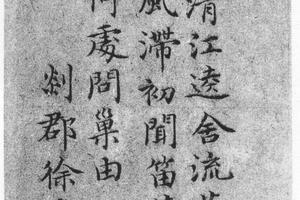 清江遶舍流
風滯初聞笛
何處問巢由
剡郡徐